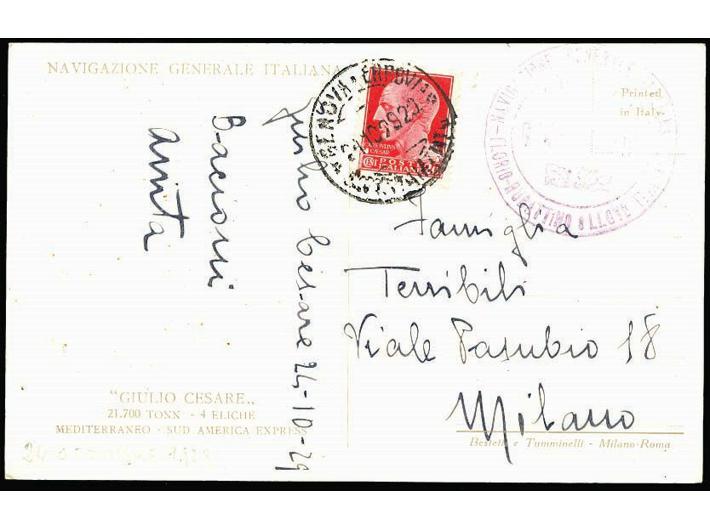 NAVIGAZIONE GENERALE ITALIANA
Giulio Cesare 24-10-29
Bacioni
Annita
"GIULIO CESARE„
21.700 TONN - 4 ELICHE
MEDITERRANEO - SUD AMERICA EXPRESS
POSTE
ITALIANE
Printed
in Italy
Famiglia
Terribili
Viale Pasubio 18
Milano
Bestetti e Tumminelli - Milano-Roma